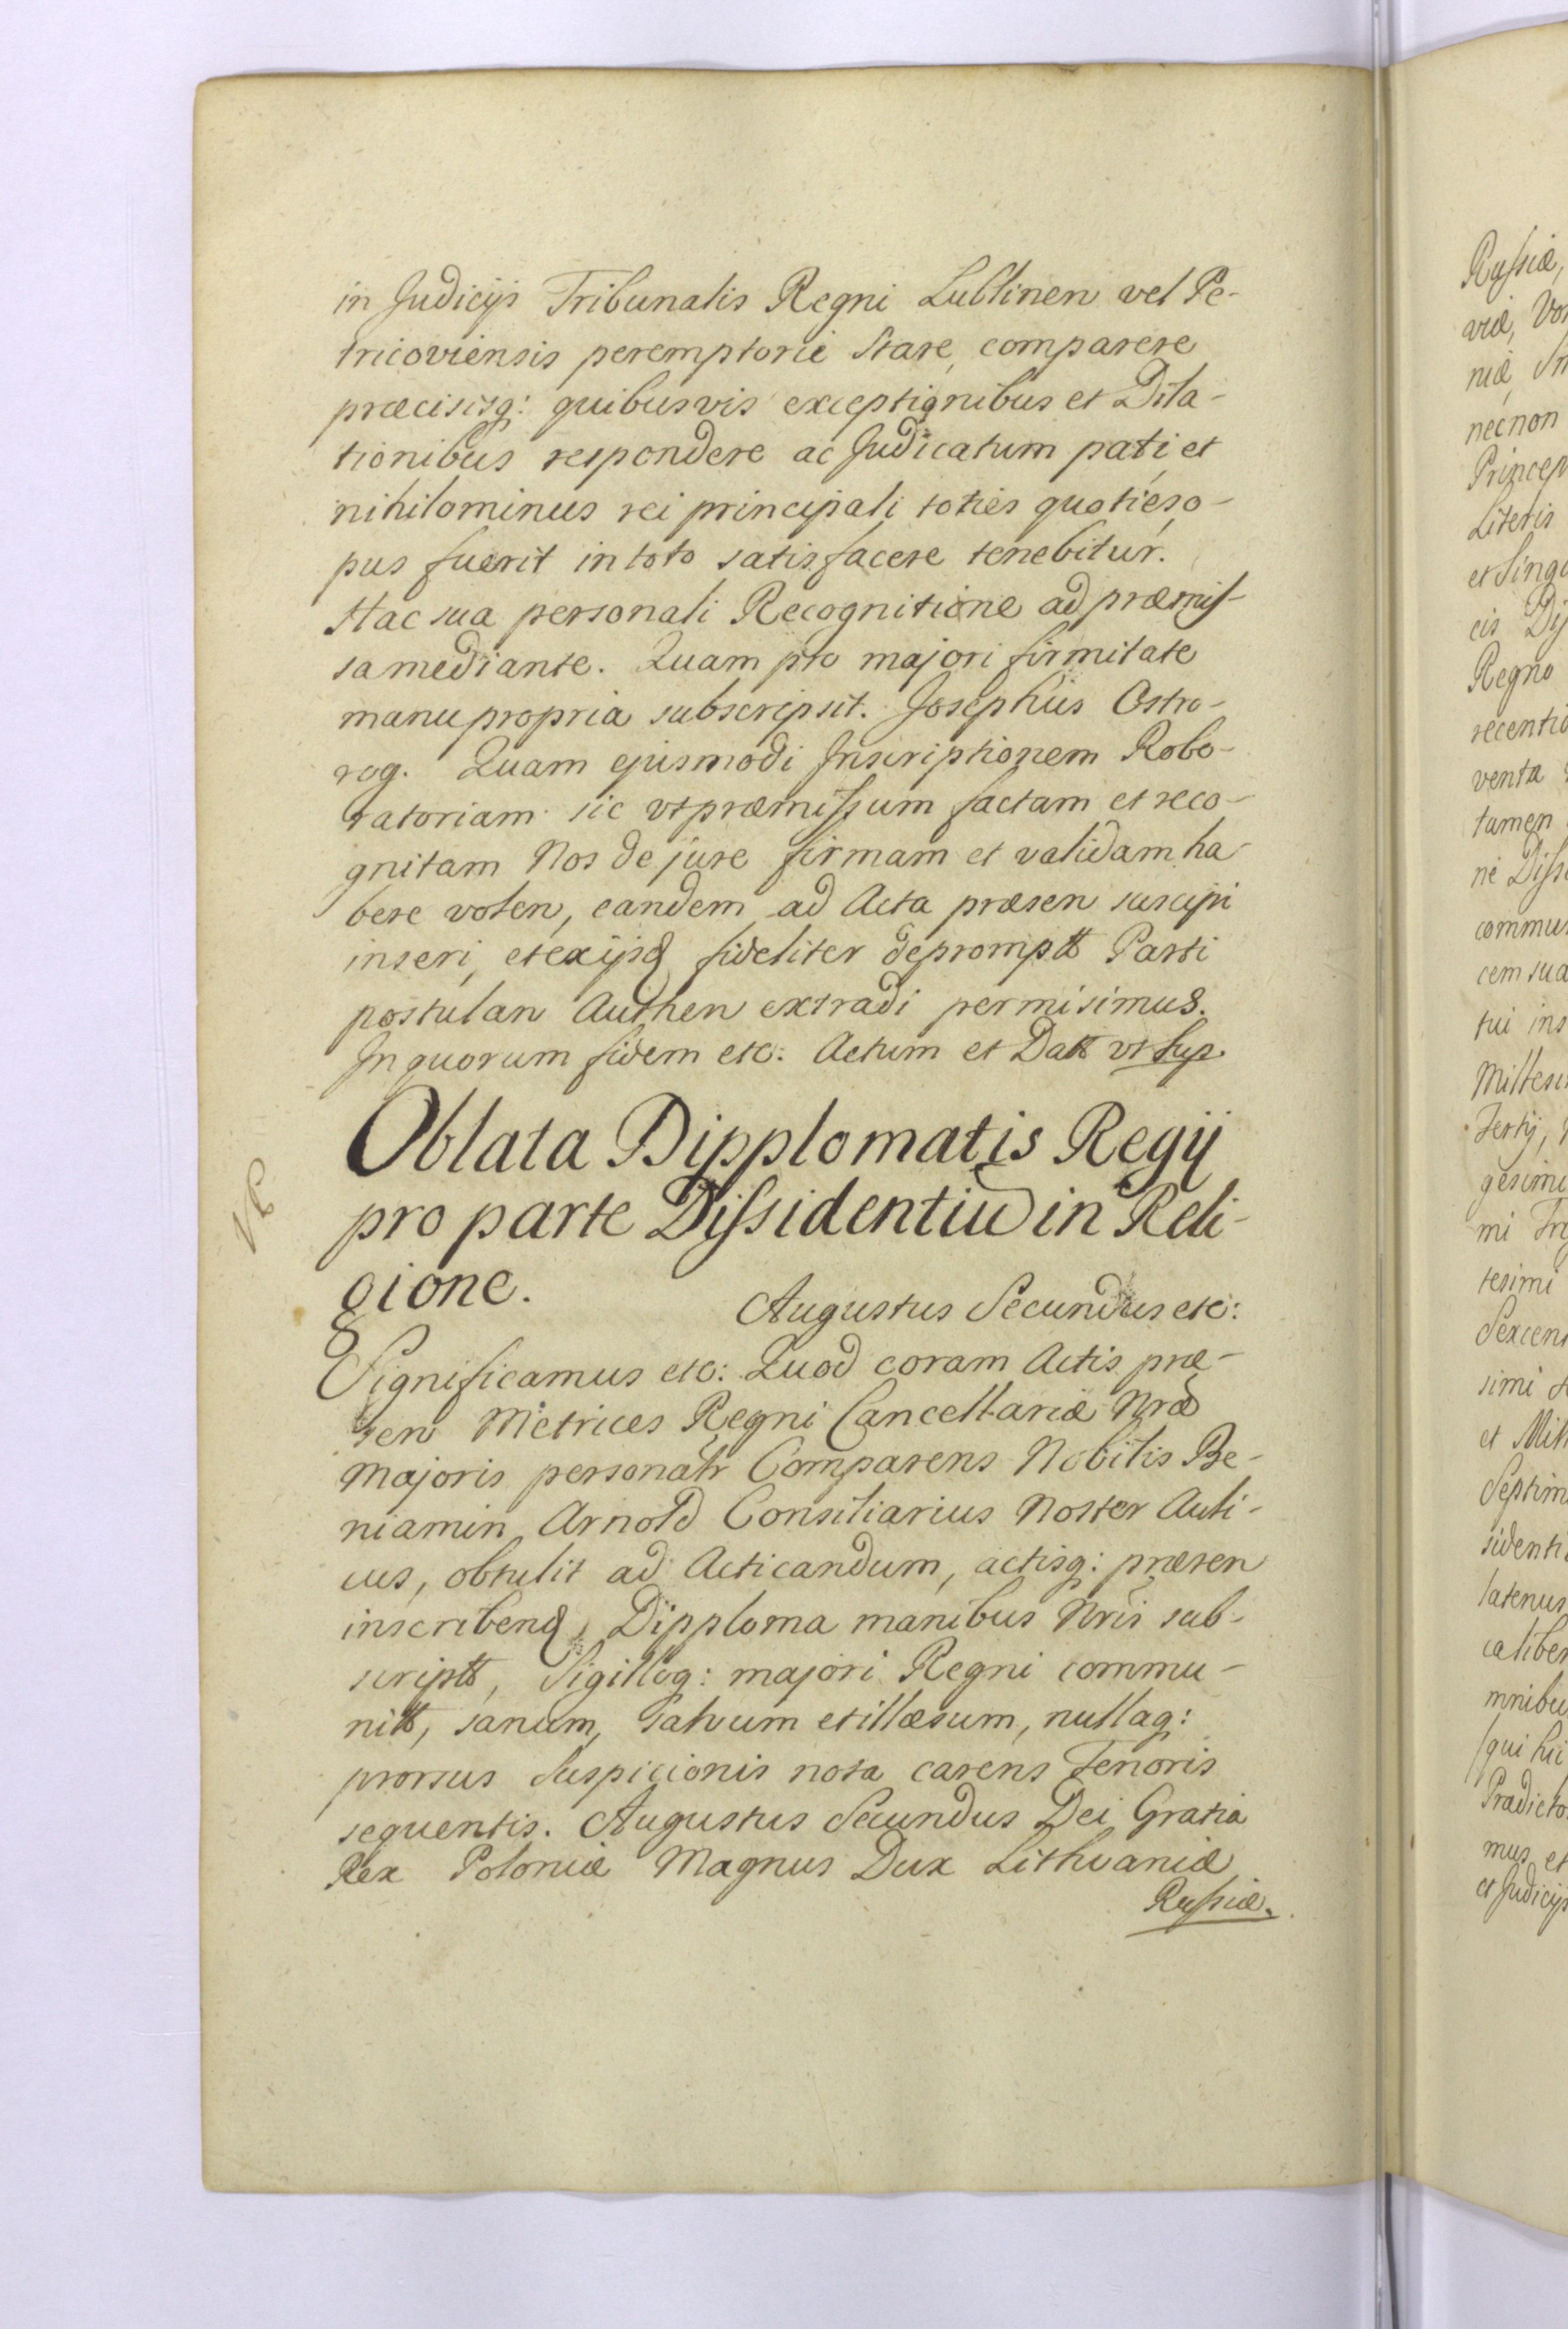 in Judicijs Tribunalis Regni Lublinen vel Pe-
tricoviensis peremptorie stare, comparere
præcisisq: quibusvis exceptionibus et Dila-
tionibus respondere ac Judicatum pati, et
nihilominus rei principali toties quoties o-
pus fuerit in toto satisfacere tenebitur.
Hac sua personali Recognitione ad præmis-
sa mediante. Quam pro majori firmitate
manu propria subscripsit. Josephus Ostro-
rog. Quam ejusmodi Inscriptionem Robo-
ratoriam sic vt præmissum factam et reco-
gnitam Nos de jure firmam et validam ha-
bere volen, eandem ad Acta præsen suscipi
inseri, et ex ijsd fideliter deprompt Parti
postulan Authen extradi permisimus.
In quorum fidem etc: Actum et Datt vt sup.
Oblata Dipplomatis Regij
pro parte Dissidentiu in Reli-
gione.
Augustus Secundus etc:
Significamus etc: Quod coram Actis præ-
sen Metrices Regni Cancellariæ Nræ
Majoris personalr Comparens Nobilis Be-
niamin Arnold Consiliarius Noster Auli-
cus, obtulit ad Acticandum, actisq: præsen
inscribend, Dipploma manibus Nris sub-
scriptt, Sigilloq: majori Regni commu-
nitt, sanum, salvum et illæsum, nullaq:
prorsus suspicionis nota carens Tenoris
sequentis. Augustus Secundus Dei Gratia
Rex Poloniæ Magnus Dux Lithvaniæ
Russiæ.
Russiæ,
viæ,
niæ
necnon
Literis
Regno
tamen
cem sua
tui ins
gesimi
tesimi
simi